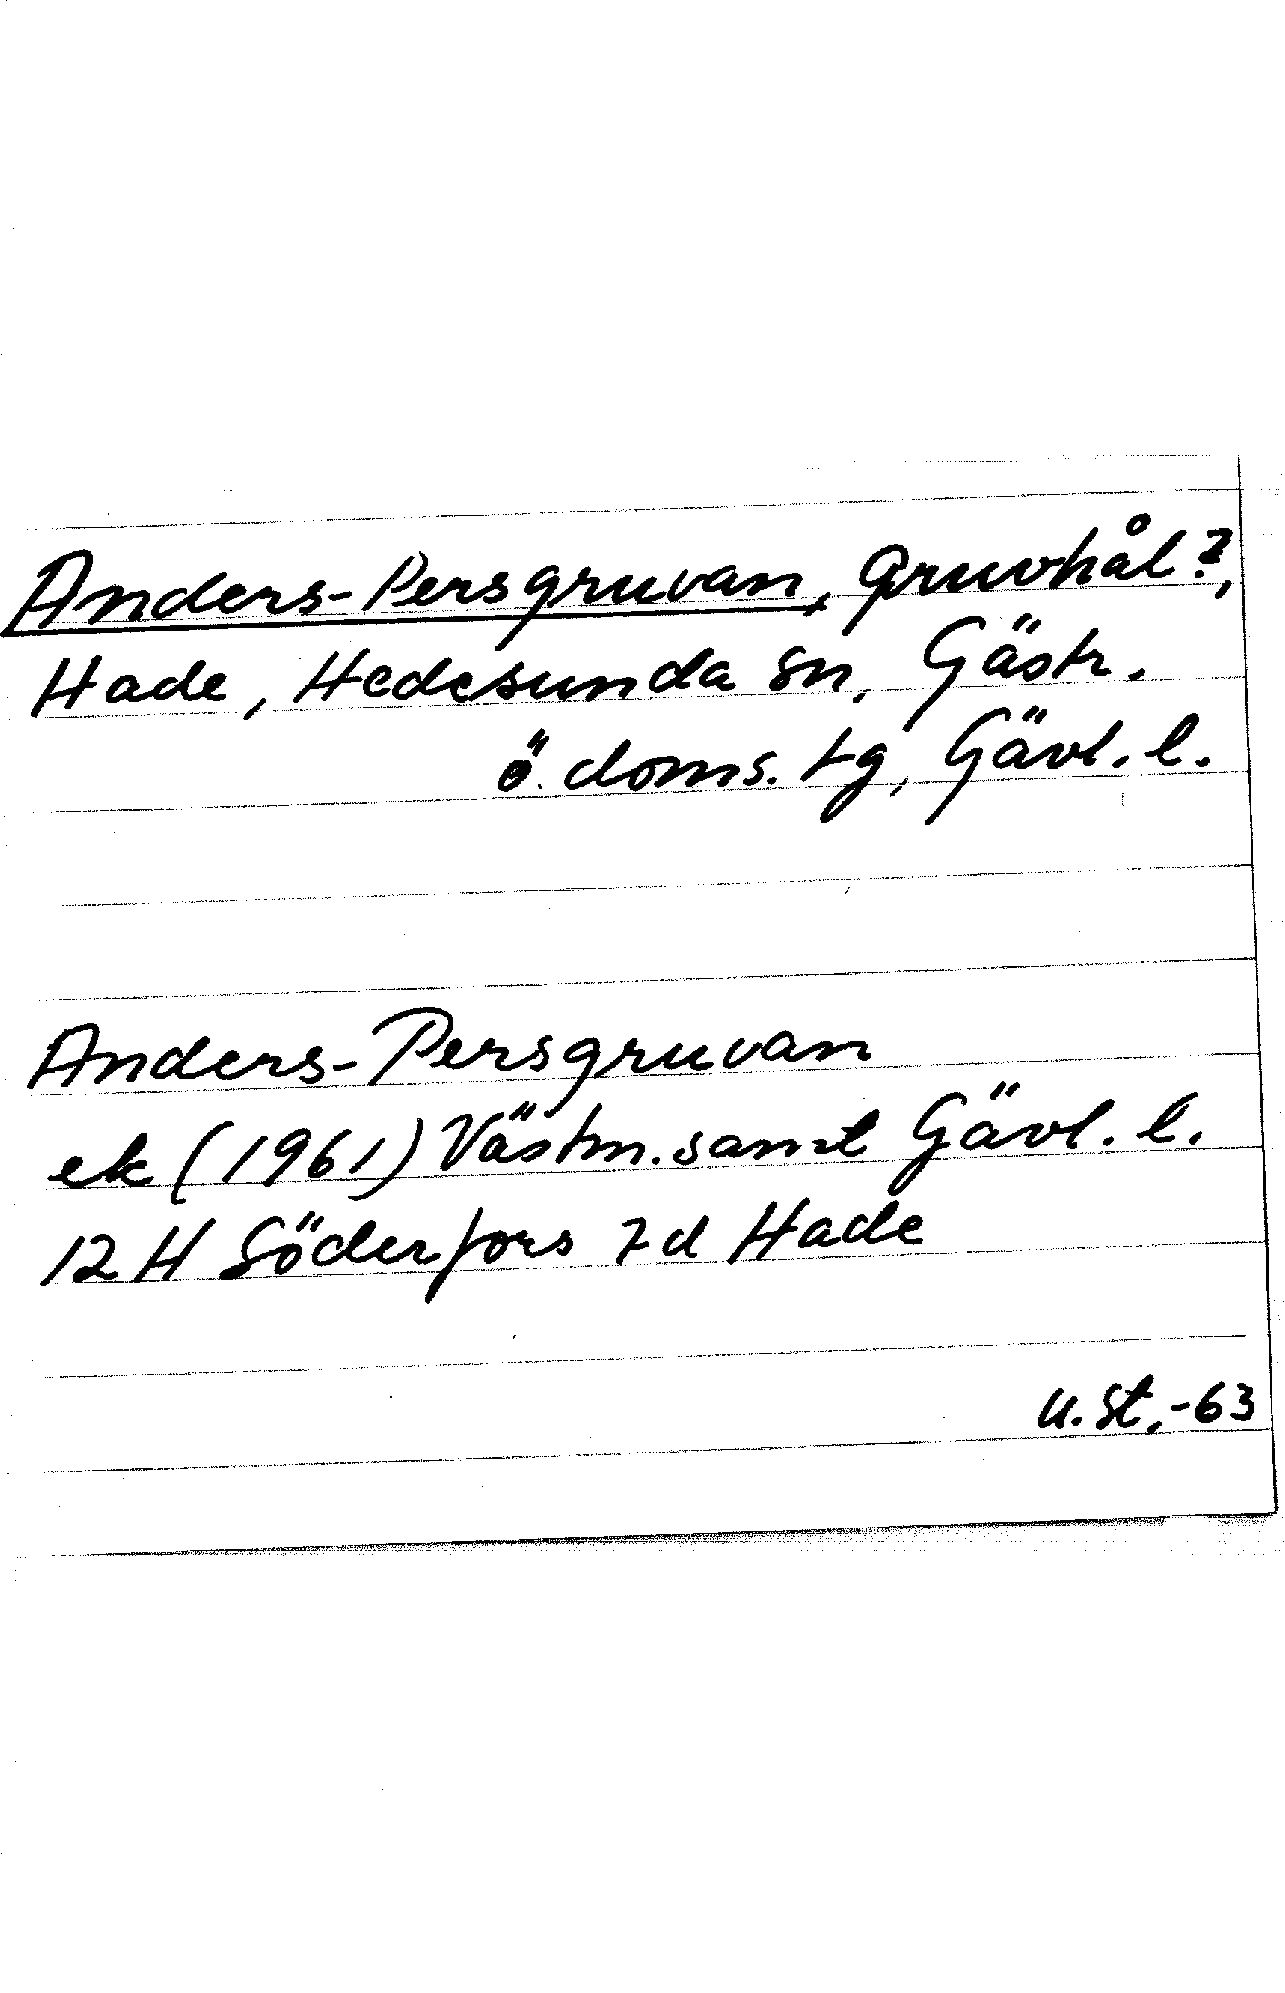 Anders-Persgruvan, gruvhål?,
Hade, Hedesunda sn, Gästr.
ö. doms. tg, Gävl. l.
Anders-Persgruvan
ek (1961) Västm. samt Gävl. l.
12 H Söderfors 7d Hade
U. St, -63